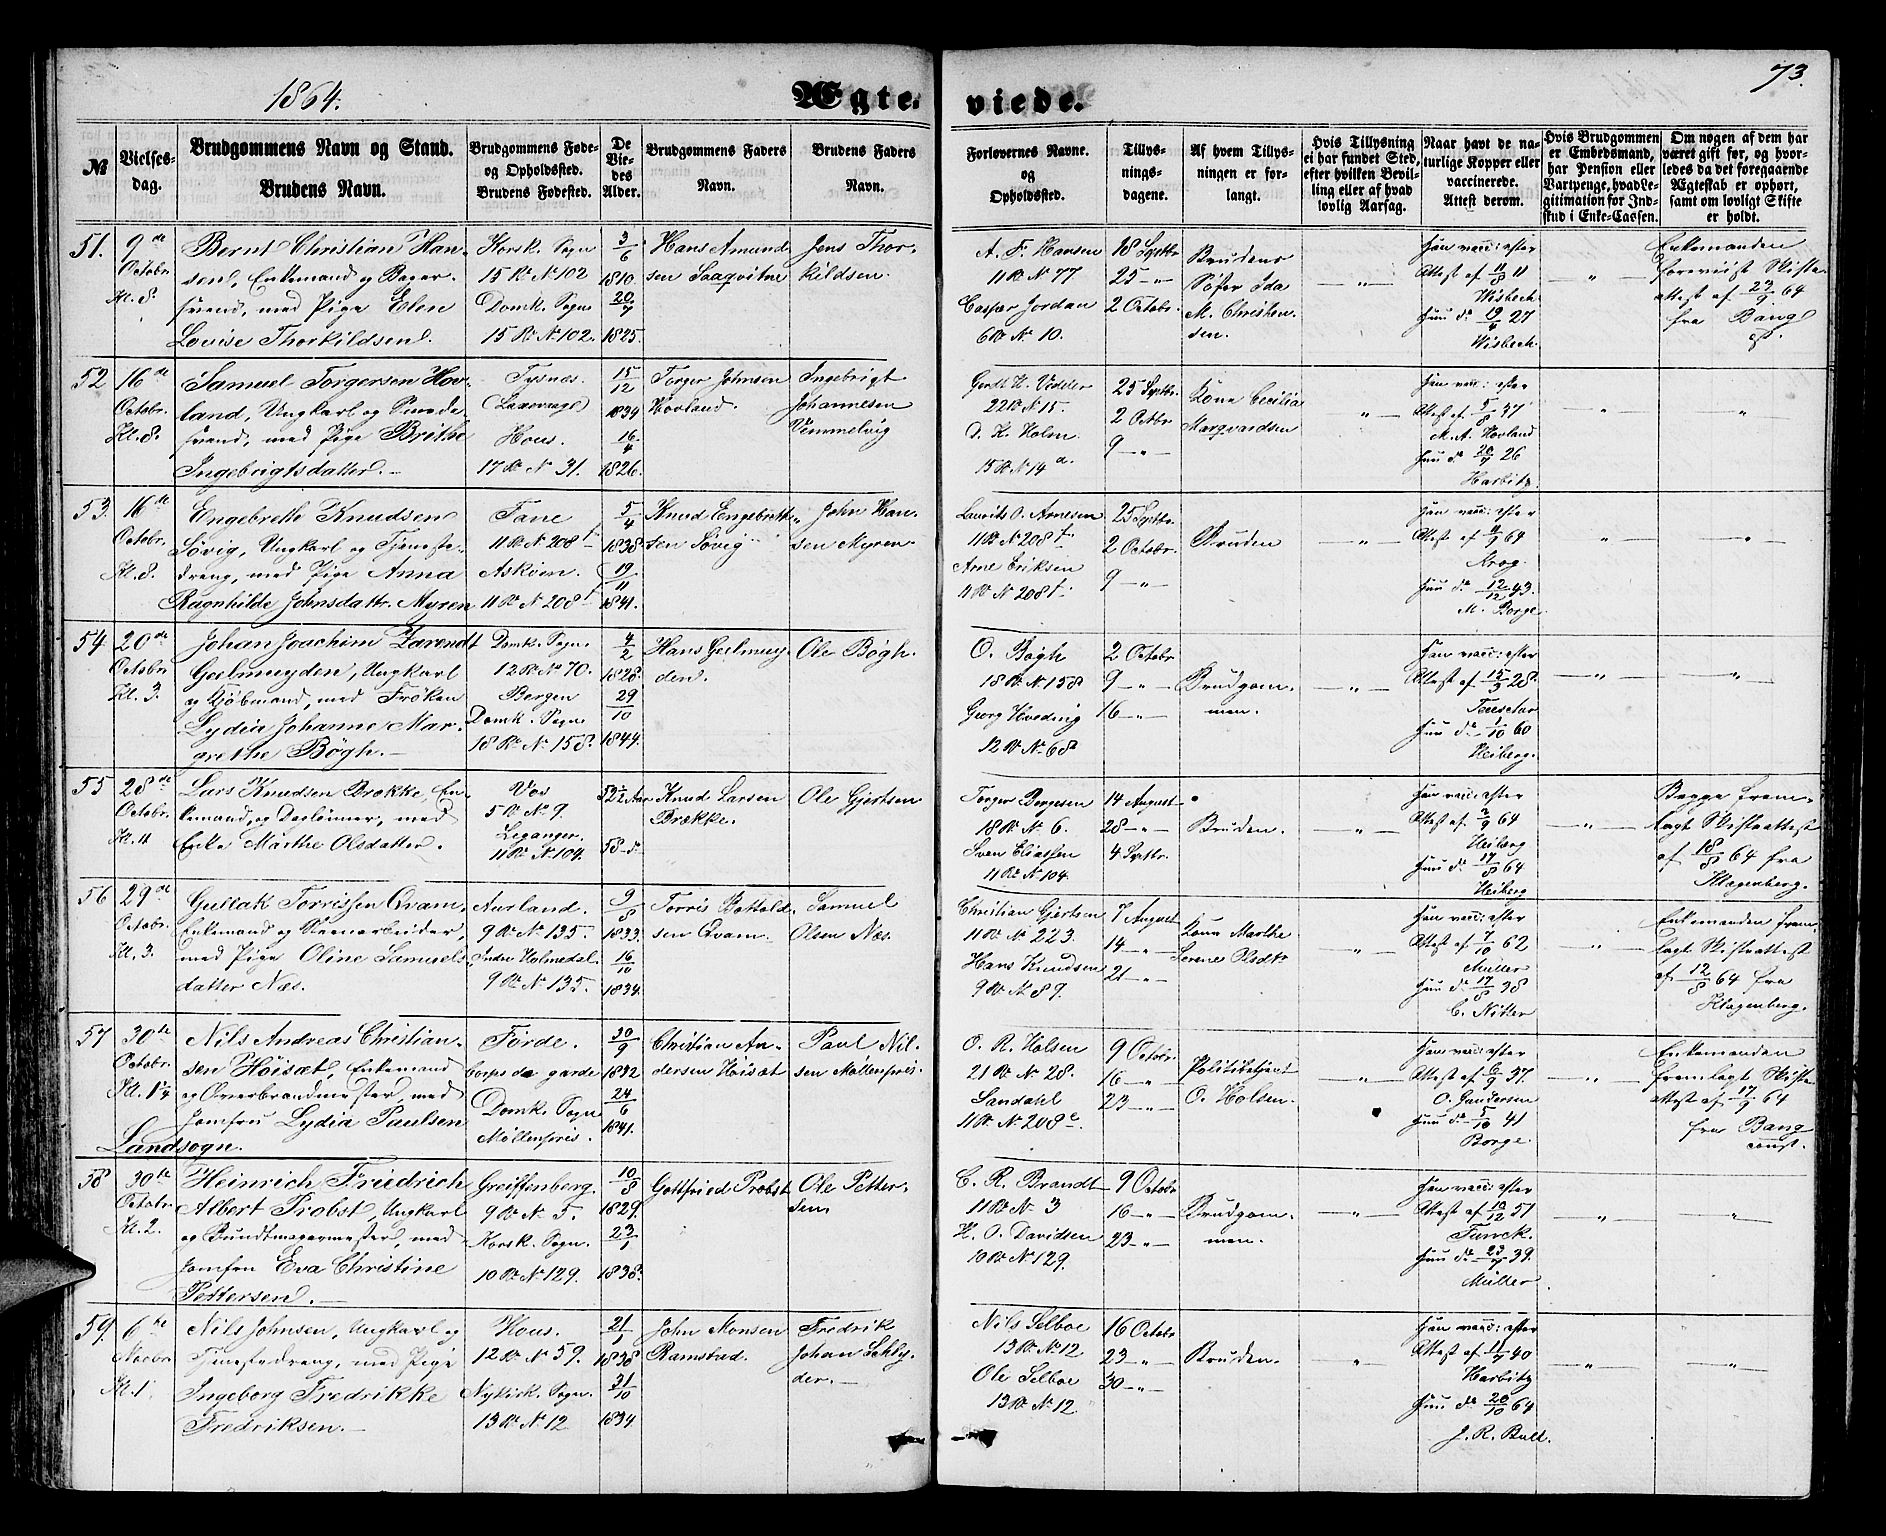 1864.
Ægte-
viede.
73.
№
Vielses-
dag.
Brudgommens Navn og Stand.
Brudens Navn.
Brudgommens Føde-
og Opholdssted.
Brudens Fødested.
De
Vie-
des
Alder.
Brudgommens Faders
Navn.
Brudens Faders
Navn.
Forlovernes Navne.
og
Opholdssted.
Tillys-
nings-
dagene.
Af hvem Tillys-
ningen er for-
langt.
Hvis Tillysning
ei har fundet Sted,
efter hvilken Bevil-
ling eller af hvad
lovlig Aarsag.
Naar havt de na-
turlige Kopper eller
vaccinerede.
Attest derom.
Hvis Brudgommen
er Embedsmand,
har Pension eller
Vartpenge, hvad Le-
gitimation for Ind-
skud i Enke-Cassen.
Om nogen af dem har
været gift før, og hvor-
ledes da det foregaaende
Ægteskab er ophørt,
samt om lovligt Skifte
er holdt.
51.
9de
Octobr.
Kl. 8.
Bernt Christian Han-
sen, Enkemand og Bager-
svend, med Pige Elen
Lovise Thorkildsen.
Korsk. Sogn
15 R. N 102
Domk. Sogn
15 R. N 102.
3/6
1810.
20/7
1825.
Hans Amund
sen Saaqvitne
Jens Thor-
kildsen.
A. F. Hansen
11 R. N 77
Casper Jordan
6 R. N 10.
18 Septbr.
25 -"-
2 Octobr.
Brudens
Søster Ida
M. Christen
sen.
-"-
Han vacc: efter
Attest af 11/8 11
Wisbech
Hun do 19/4 27
Wisbech.
"
Enkemanden
foreviist Skifte-
attest af 23/9 64
fra Bang
cst.
52
16de
Octobr.
Kl. 8.
Samuel Torgersen Hov-
land, Ungkarl og Smede-
svend, med Pige Brithe
Ingebrigtsdatter.
Tysnæs.
Hous.
17 R. N 31.
15/12
1834
16/4
1826.
Torger Johnsen
Hovland.
Ingebrigt
Johannesen
Vemmelvig
Gerdt K. Vedeler
22 R. N 15.
D. K. Holm.
15 R. N 14 a.
25 Septbr.
2 Octbr.
9 -"-
Kone Cecilia
Marqvardsen
"
Han vacc: efter
Attest af 5/8 47
M. A. Hovland
Hun do 20/7 26
Harbitz
"
"
53.
16de
Octobr.
Kl. 8.
Engebreth Knudsen
Søvig, Ungkarl og Tjeneste-
dreng, med Pige Anna
Ragnhilde Johnsdattr. Myren
Fane
11 R. N 208 f
Askøen.
11 R. N 208 f
5/4
1838.
19/11
1841.
Knud Engebrett-
sen Søvig
John Han-
sen Myren.
Laurits O. Arnesen
11 R. N 208 f.
Arne Eriksen
11 R. N 208 f.
25 Septbr.
2 Octobr.
9 -"-
Bruden
-"-
Han vacc: efter
Attest af 4/9 64
Krog.
Hun do 12/12 43.
M. Borge.
"
"
54
20de
Octobr.
Kl. 3.
Johan Joachim Zarendt
Geelmuyden, Ungkarl
og Kjøbmand, med Frøken
Lydia Johanne Mar-
grethe Bøgh.
Domk. Sogn.
12 R. No 70.
Bergen
Domk. Sogn.
18 R. N. 158.
4/2
1828.
29/10
1844.
Hans Geelmuy-
den.
Ole Bøgh.
O. Bøgh
18 R. N. 158
Georg Hveding
12 R. N. 68 a
2 Octobr
9 -"-
16 -"-
Brudgom-
men.
-"-
Han vacc: efter
Attest af 15/3 28.
Hun do 1/10 60
Heiberg.
-"-
-"-
55
28de
Octobr.
Kl. 11
Lars Knudsen Brække, En-
kemand og Daglønner, med
Enke Marthe Olsdatter.
Vos
5 R. No 9.
Leganger.
11 R. N. 104.
52 1/2 Aar
58 - do
Knud Larsen
Brække.
Ole Gjertsen
Torger Borgesen
18 R. N. 6.
Sven Eliassen
11 R. No 104.
14 August
28 -"-
4 Septbr.
Bruden.
-"-
Han vacc: efter
Attest af 2/9 64
Heiberg
Hun do 17/8 64
Heiberg
-"-
Begge frem-
lagt Skifteattest
af 18/8 64 fra
Klagenberg.
56
29de
Octobr.
Kl. 3.
Gullak Torrissen Qvam,
Enkemand og Steenarbeider,
med Pige Oline Samuels
datter Næs.
Aurland.
9 R. No 135.
Indre Holmedal.
9 R. No 135.
9/8
1833.
16/10
1834.
Torris Bottold-
sen Qvam.
Samuel
Olsen Næs.
Christian Gjertsen
11 R. No 223.
Hans Knudsen
9 R. N. 89.
7 August
14 -"-
21 -"-
Kone Marthe
Serene Olsdtr
-"-
Han vacc: efter
Attest af 7/10 62
Müller
Hun do 17/8 38
C. Nitter
-"-
Enkemanden frem-
lagt Skifteattest
af 12/8 64 fra
Klagenberg.
57
30te
Octobr.
Kl. 1 1/4
Nils Andreas Christian-
sen Høisæt, Enkemand
og Overbrandmester, med
Jomfru Lydia Paulsen
Landsogn.
Førde.
Corps de garde
Domk. Sogn
Møllenpris.
30/9
1832
24/6
1841.
Christian An-
dersen Høisæt
Paul Nil-
sen Møllenpris.
O. R. Holsen
21 R. No 28.
Sandahl
11 R. No 208 e.
9 Octobr.
16 -"-
23 -"-
Politibetjent
O. Holsen.
-"-
Han vacc: efter
Attest af 6/9 37.
O. Gundersen
Hun do 5/10 41
Borge.
-"-
Enkemanden
fremlagt Skifte
attest af 17/9 64
fra Bang
const.
58
30te
Octobr.
Kl. 2.
Heinrich Friedrich
Albert Probst, Ungkarl
og Bundtmagermester, med
Jomfru Eva Christine
Pettersen.
Greiffenberg.
9 R. N. 5.
Korsk. Sogn.
10 R. No 129.
10/8
1829.
23/1
1838.
Gottfried Probst
Ole Petter-
sen
C. R. Brandt
11 R. No 3
K. O. Davidsen
10 R. No 129.
9 Octobr
16 -"-
23 -"-
Brudgom-
men.
-"-
Han vacc: efter
Attest af 10/12 51
Turck.
Hun do 23/7 39.
Müller
-"-
-"-
59.
6te
Novbr.
Kl. 1
Nils Johnsen, Ungkarl og
Tjenestedreng, med Pige
Ingeborg Fredrikke
Fredriksen.
Hous.
12 R. No 59.
Nykirk. Sogn.
13 R. No 12
21/1
1838
31/10
1834.
John Monsen
Ramstad.
Fredrik
Johan Schly-
der.
Nils Selboe
13 R. No 12
Ole Selboe
13 R. No 12
16 Octobr
23 -"-
30 -"-
Bruden.
"
Han vacc: efter
Attest af 11/7 40
Harbitz
Hun do 20/10 64
J. R. Bull.
-"-
-"-